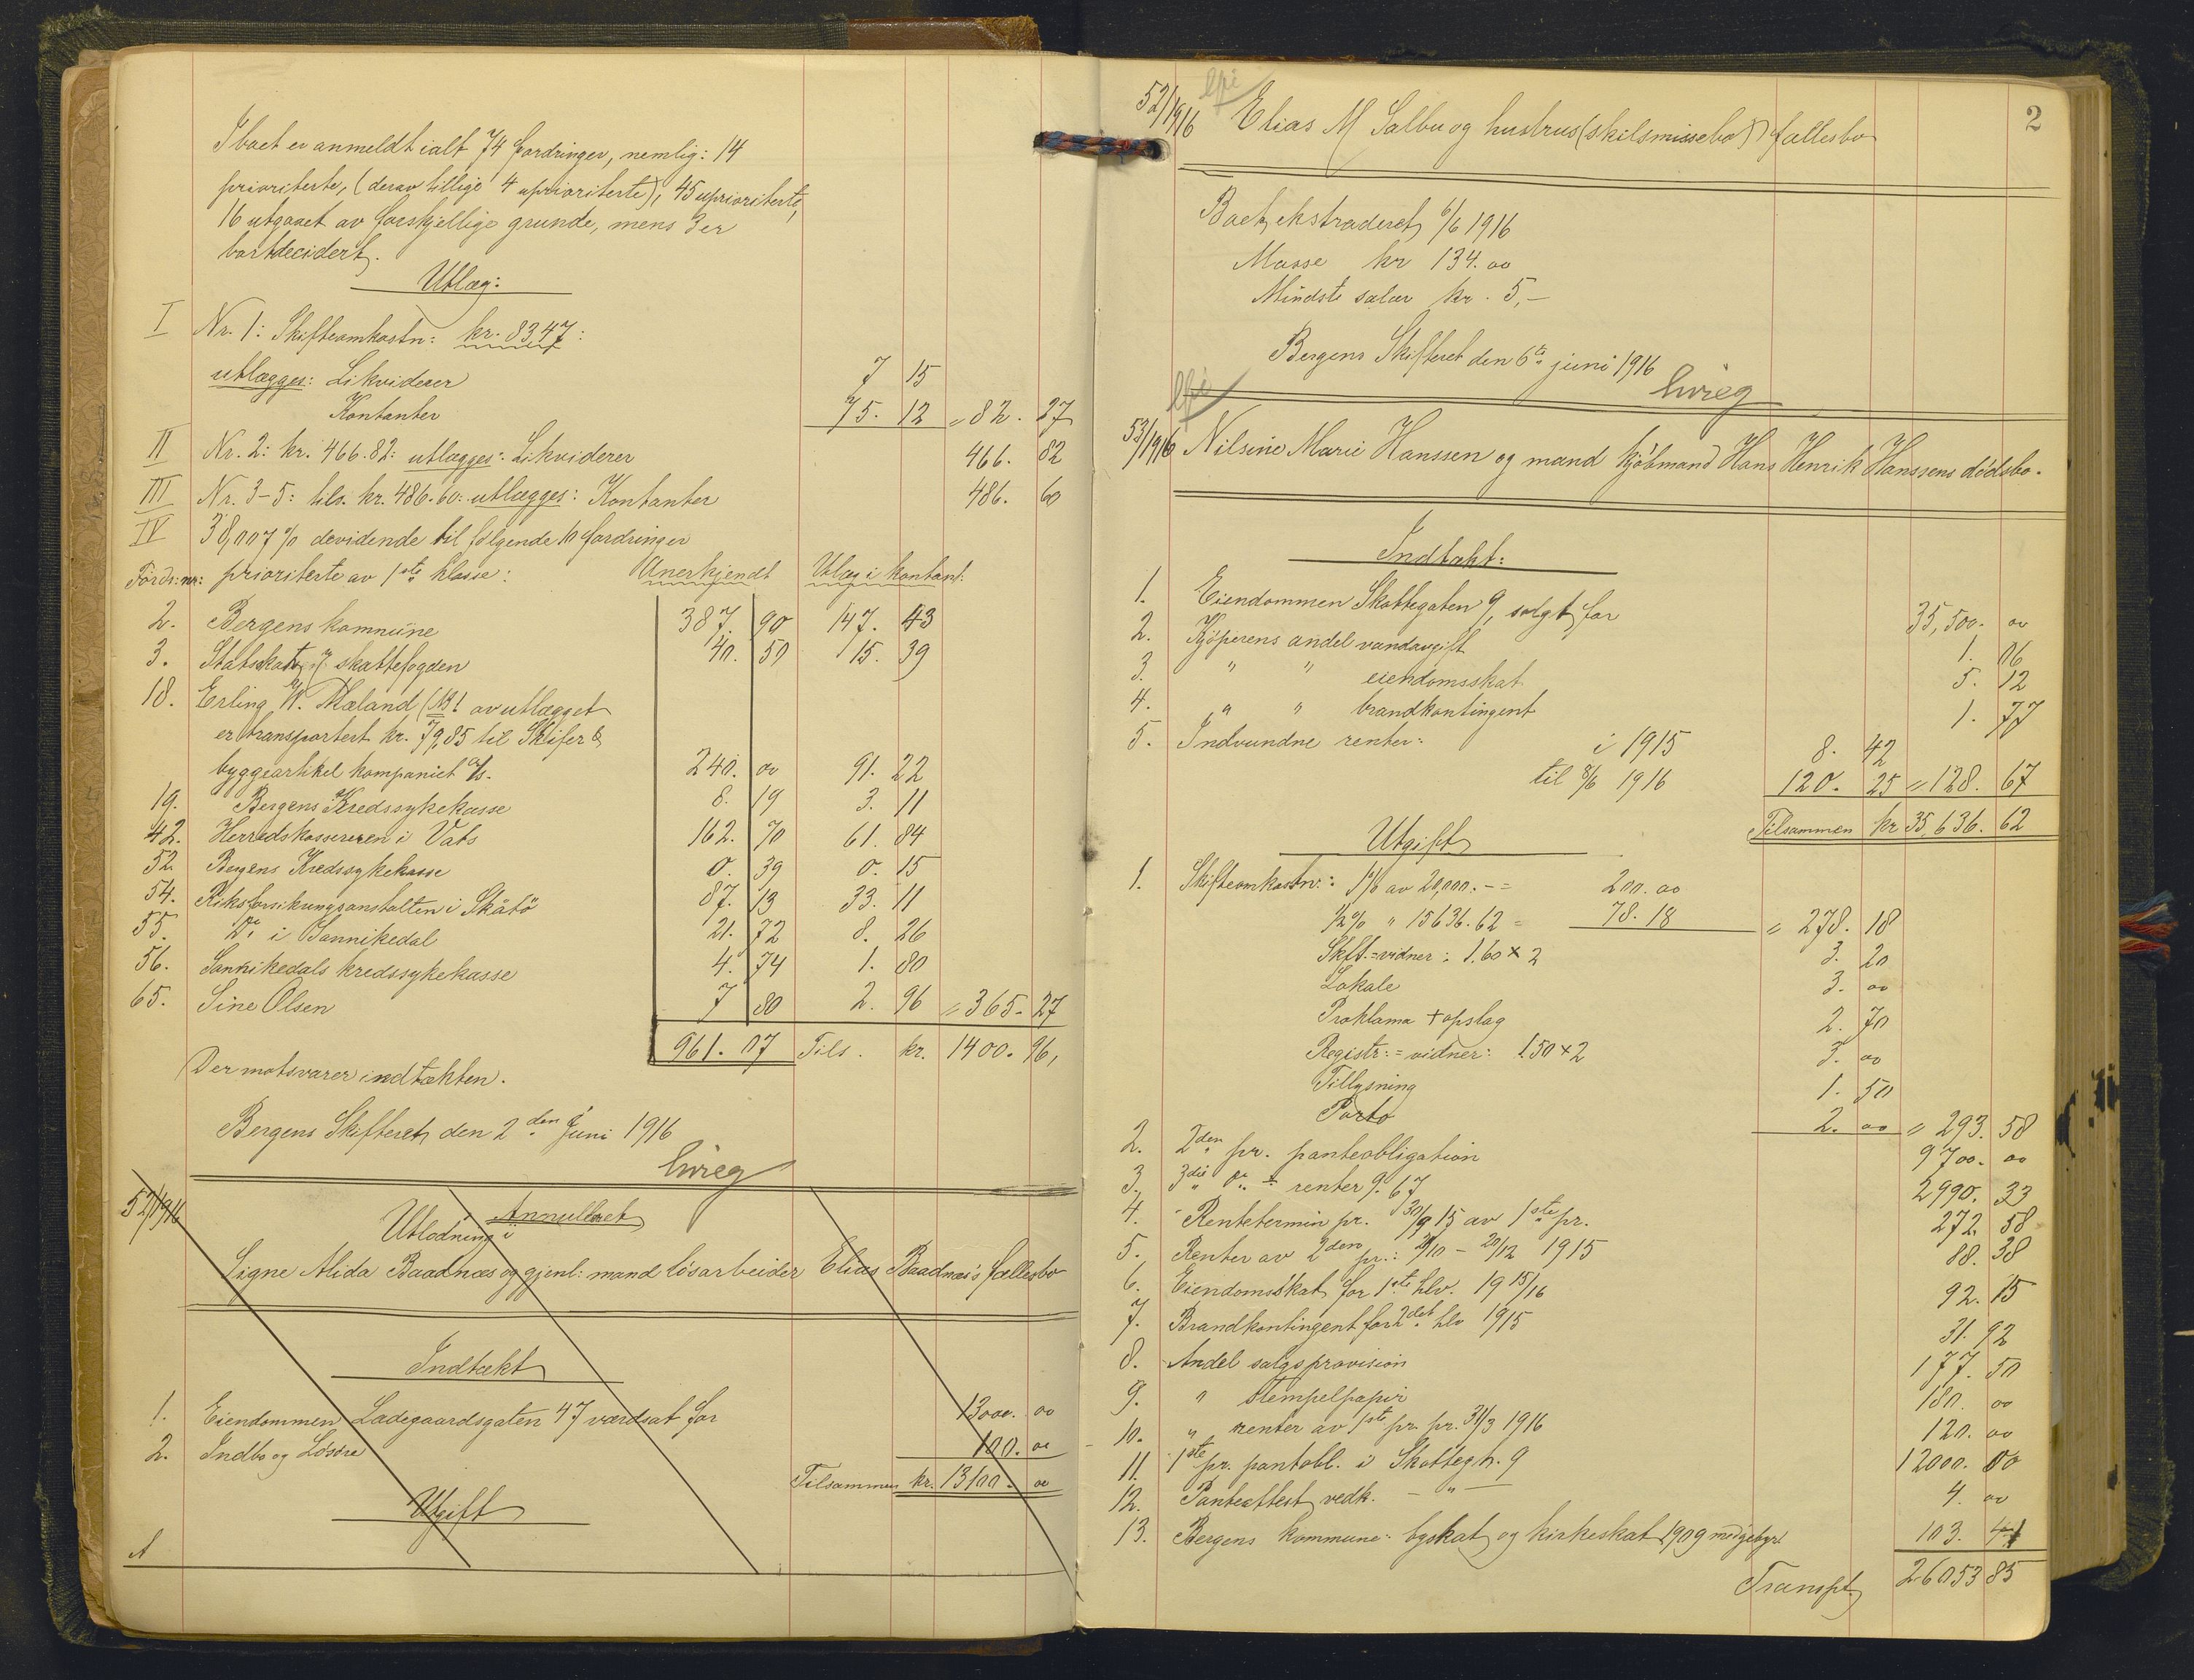 I boet er anmeldt ialt 74 fordringer, nemlig: 14
prioriterte, (derav tillige 4 uprioriterte), 45 uprioriterte,
16 utgaaet av forskjellige grunde, mens 3 er
bortdecidert.
Utlæg:
I Nr. 1: Skifteomkostn: kr. 83.47:
utlægges: Likviderer 7 15
Kontanter 75. 12 = 82. 27
II Nr. 2: kr. 466.82: utlægges: Likviderer 466. 82
III Nr. 3-5: tils. kr. 486.60: utlægges: Kontanter 486. 60
IV 38,007 % devidende til følgende 10 fordringer
Fordr: nr: prioriterte av 1ste klasse: Anerkjendt Utlæg i kontant:
2. Bergens kommune 387. 90 147. 43
3. Statsskat v/ skattefogden 40. 50 15. 39
18. Erling W. Mæland (NB! av utlægget
er transportert kr. 79,85 til Skifer &
byggeartikel kompaniet A/S. 240. 00 91. 22
19. Bergens Kredssykekasse 8. 19 3. 11
42. Herredskassereren i Vats 162. 70 61. 84
52. Bergens Kredssykekasse 0. 39 0. 15
54. Riksforsikringsanstalten i Skåtö 87. 13 33. 11
55. Do i Sannikedal 21. 72 8. 26
56. Sannikedals kredssykekasse 4. 74 1. 80
65. Sine Olsen 7 80 2. 96 = 365. 27
961. 07 Tils. kr. 1400. 96,
Der motsvarer indtækten.
Bergens Skifteret den 2den Juni 1916
52/1916 Annulleret
Utlodning i
Signe Alida Baadnæs og gjenl: mand løsarbeider Elias Baadnæs's fællesbo
Indtækt
1. Eiendommen Ladegaardsgaten 47 værdsat for 13000. 00
2. Indbo og Løsøre 100. 00
Tilsammen kr. 13100. 00
Utgift
2
52/1916 Elias M Salbu og hustrus (skilsmissebo) fællesbo
Boet ekstraderet 6/6 1916
Masse kr 134. 00
Mindste salær kr. 5,-
Bergens Skifteret den 6te juni 1916
53/1916 Nilsine Marie Hanssen og mand kjøbmand Hans Henrik Hanssens dødsbo.
Indtækt:
1. Eiendommen Skottegaten 9, solgt for 35,500. 00
2. Kjøperens andel vandavgift 1. 06
3. " " eiendomsskat 5. 12
4. " " brandkontingent 1. 77
5. Indvundne renter: i 1915 8. 42
til 8/6 1916 120. 25 = 128. 67
Tilsammen kr 35,636. 62
Utgift
1. Skifteomkostn: 1% av 20,000.- = 200. 00
1/2 % " 15636.62 = 78. 18 = 278. 18
Skft.=vidner: 1.60 x 2 3. 20
Lokale 3. 00
Proklama + opslag 2. 70
Registr:=vidner: 1.50 x 2 3. 00
Tillysning 1. 50
Porto 2. 00 = 293. 58
2. 2den pr. panteobligation 9700. 00
3. 3die do + renter 9.67 2990. 33
4. Rentetermin pr. 30/9 15 av 1ste pr. 272. 58
5. Renter av 2den pr.: - 20/12 1915 88. 38
6. Eiendomsskat for 1ste hlv. 1915/16 92. 15
7. Brandkontingent for 2det hlv 1915 31. 92
8. Andel salgsprovision 177. 50
9. " stempelpapir 180. 00
10. " renter av 1ste pr. pr. 31/3 1916 120. 00
11. 1ste pr. pantobl. i Skottegt. 9 12000. 00
12. Panteattest vedk. - " - 4. 00
13. Bergens kommune: byskat og kirkeskat 1909 med gebyr 103. 41
Transpt. 26053 85